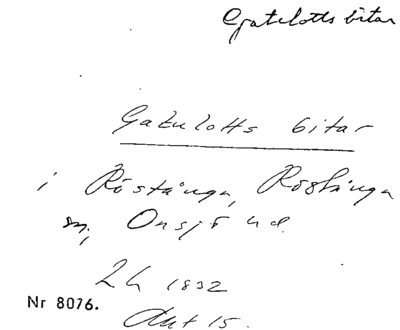 Gatulotts bitar
Gatulotts bitar
i Röstånga, Röstånga
sn, Onsjö hd.
Lh 1832
Akt 15.
Nr 8076.